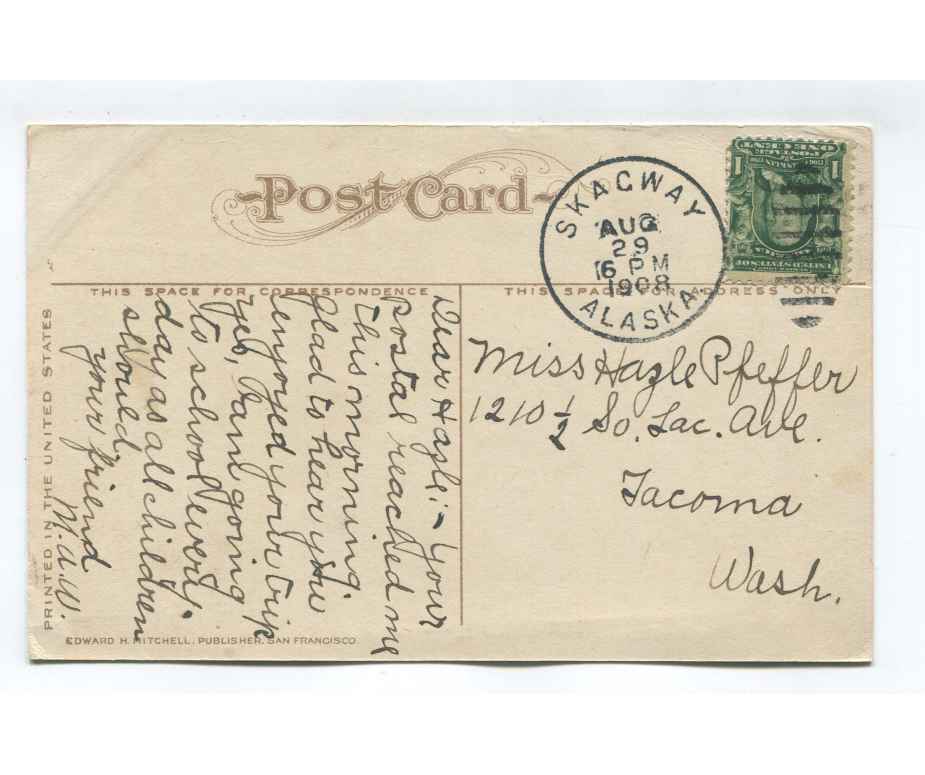 Post Card
SKAGWAY
AUG
29
6 PM
1908
ALASKA.
1
1
ONE CENT
POSTAGE
THIS SPACE FOR CORRESPONDENCE
THIS SPACE FOR ADDRESS ONLY
Dear Hazle:- Your
postal reached me
this morning.
Glad to hear you
enjoyed your trip
Yes, I am going
to school every
day as all children
should.
your friend
M.A.W.
Miss Hazle Pfeffer
1210 ½ So. Tac. Ave.
Tacoma
Wash.
PRINTED IN THE UNITED STATES
EDWARD H. MITCHELL, PUBLISHER, SAN FRANCISCO.